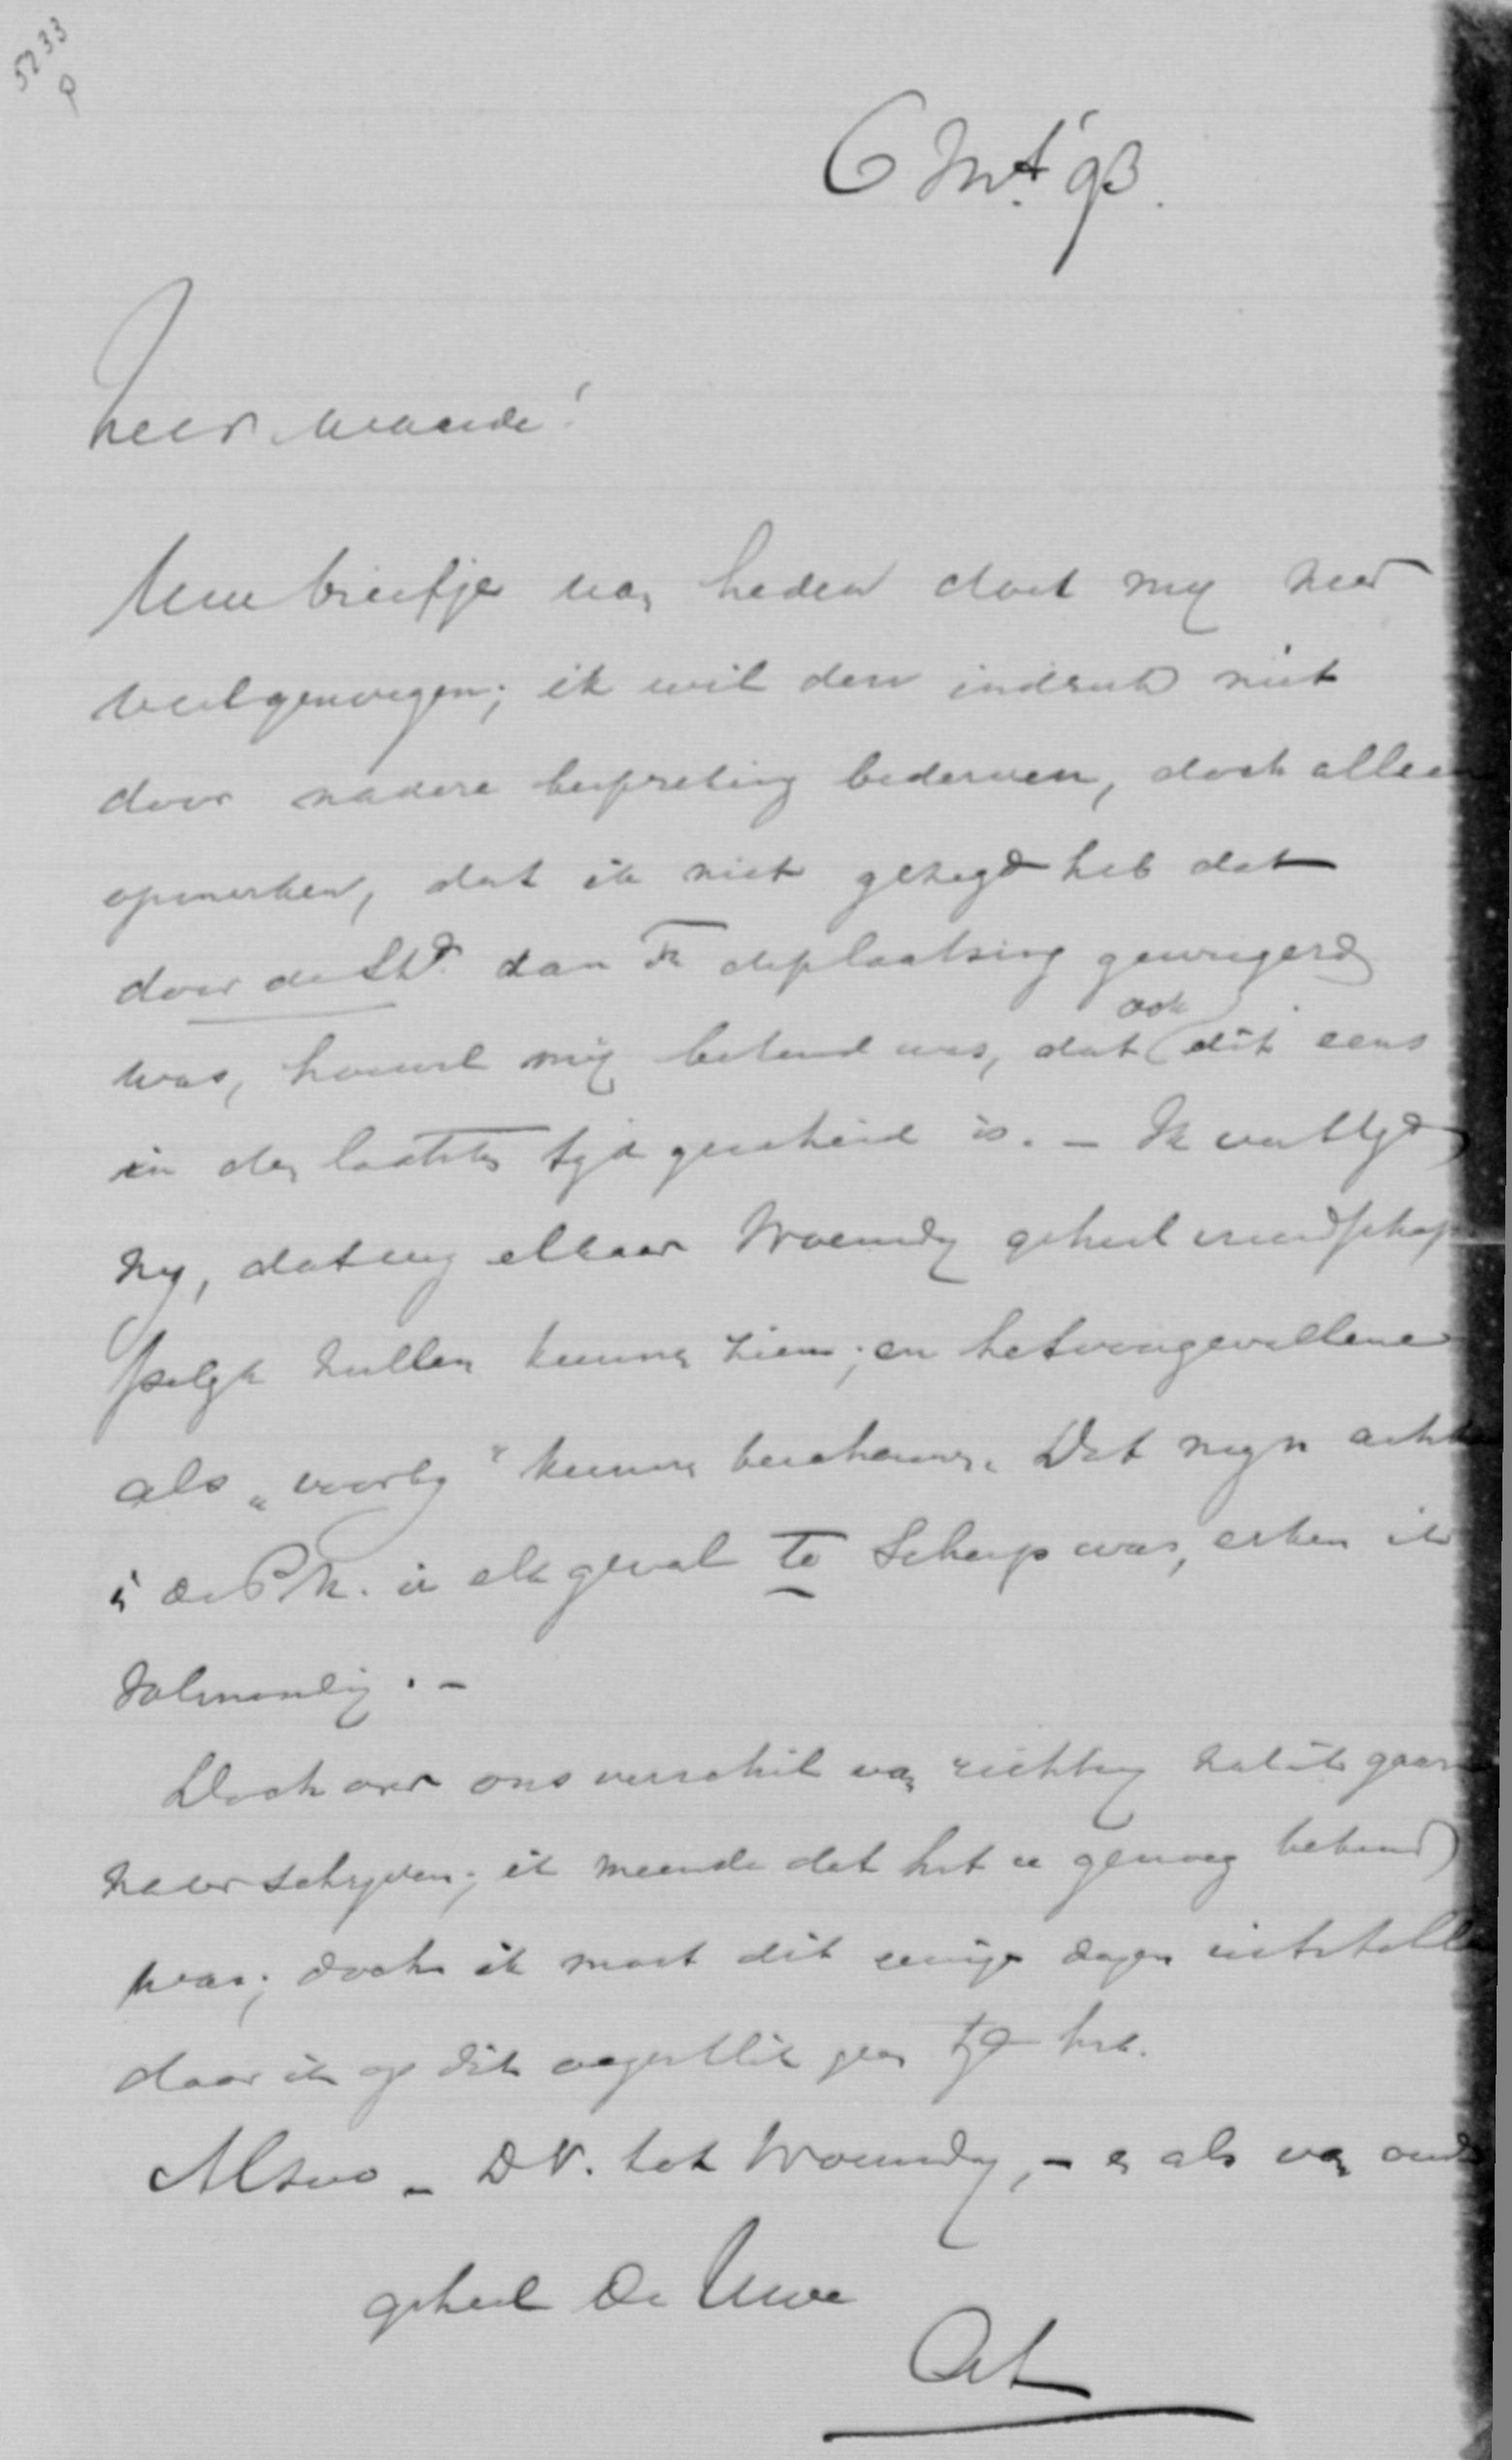 5233
6 Mrt '93.
Zeer waarde!
Uwe briefje van heden doet mij zeer
veel genoegen; ik wil den indruk niet
door nadere bespreking bederven, doch alleen
opmerken, dat ik niet gezegd heb dat
door de St^d. dan de plaatsing geweigerd
was, hoewel mij bekend was, dat ook dit eens
in den laatsten tijd geschied is. – Ik
my, dat wij elkaar Woensdg geheel vriendschap
pelijk zullen kunnen zien; en het voorgevallene
als „voorbij" kunnen beschouwen. Dat mijn
in de in elk geval te scherp was, erken ik
volmondig. –
Doch over ons verschil van richting zal ik gaarne
nader schrijven; ik meende dat het u genoeg bekend
was; doch ik moet dit eenige dagen uitstellen
daar ik op dit oogenblik geen tijd heb.
Alzoo – D.V. tot Woensdg, – en als van ouds
geheel de Uwe